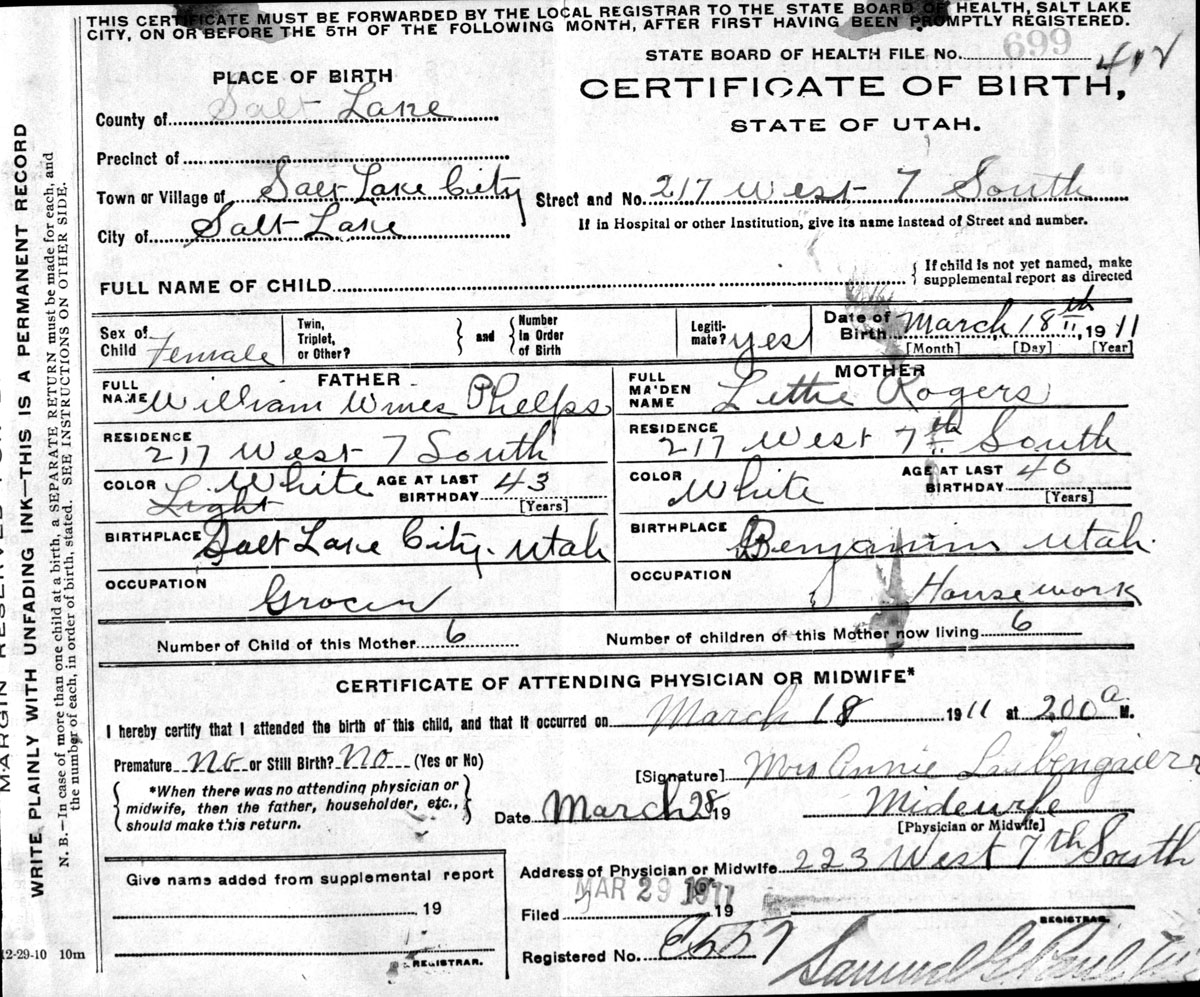 THIS CERTIFICATE MUST BE FORWARDED BY THE LOCAL REGISTRAR TO THE STATE BOARD OF HEALTH, SALT LAKE
CITY, ON OR BEFORE THE 5TH OF THE FOLLOWING MONTH, AFTER FIRST HAVING BEEN PROMPTLY REGISTERED.
STATE BOARD OF HEALTH FILE No. 699
412
PLACE OF BIRTH
CERTIFICATE OF BIRTH,
STATE OF UTAH.
County of Salt Lake
Precinct of
Town or Village of Salt Lake City
Street and No. 217 West 7 South
City of Salt Lake
If in Hospital or other Institution, give its name instead of Street and number.
FULL NAME OF CHILD
If child is not yet named, make
supplemental report as directed
Sex of Child Female
Twin, Triplet, or Other?
and
Number in Order of Birth
Legiti-mate? yes
Date of Birth March 18th 1911
[Month] [Day] [Year]
FATHER
FULL NAME William Wines Phelps
MOTHER
FULL MAIDEN NAME Lettie Rogers
RESIDENCE 217 West 7 South
RESIDENCE 217 West 7th South
COLOR White Light
AGE AT LAST BIRTHDAY 43
[Years]
COLOR White
AGE AT LAST BIRTHDAY 40
[Years]
BIRTHPLACE Salt Lake City. Utah
BIRTHPLACE Benjamin Utah.
OCCUPATION Grocer
OCCUPATION House work
Number of Child of this Mother 6
Number of children of this Mother now living 6
CERTIFICATE OF ATTENDING PHYSICIAN OR MIDWIFE*
I hereby certify that I attended the birth of this child, and that it occurred on March 18 1911 at 200 a M.
Premature No or Still Birth? No (Yes or No)
[Signature] Mrs Annie
*When there was no attending physician or
midwife, then the father, householder, etc.,
should make this return.
Date March 28 19
Midewife
[Physician or Midwife]
Address of Physician or Midwife 223 West 7th South
Give name added from supplemental report
19
REGISTRAR.
Filed MAR 29 1911 19
REGISTRAR.
Registered No.
Samuel G. Paul
12-29-10 10m
MARGIN RESERVED
WRITE PLAINLY WITH UNFADING INK—THIS IS A PERMANENT RECORD
N. B.—In case of more than one child at a birth, a SEPARATE RETURN must be made for each, and
the number of each, in order of birth, stated. SEE INSTRUCTIONS ON OTHER SIDE.